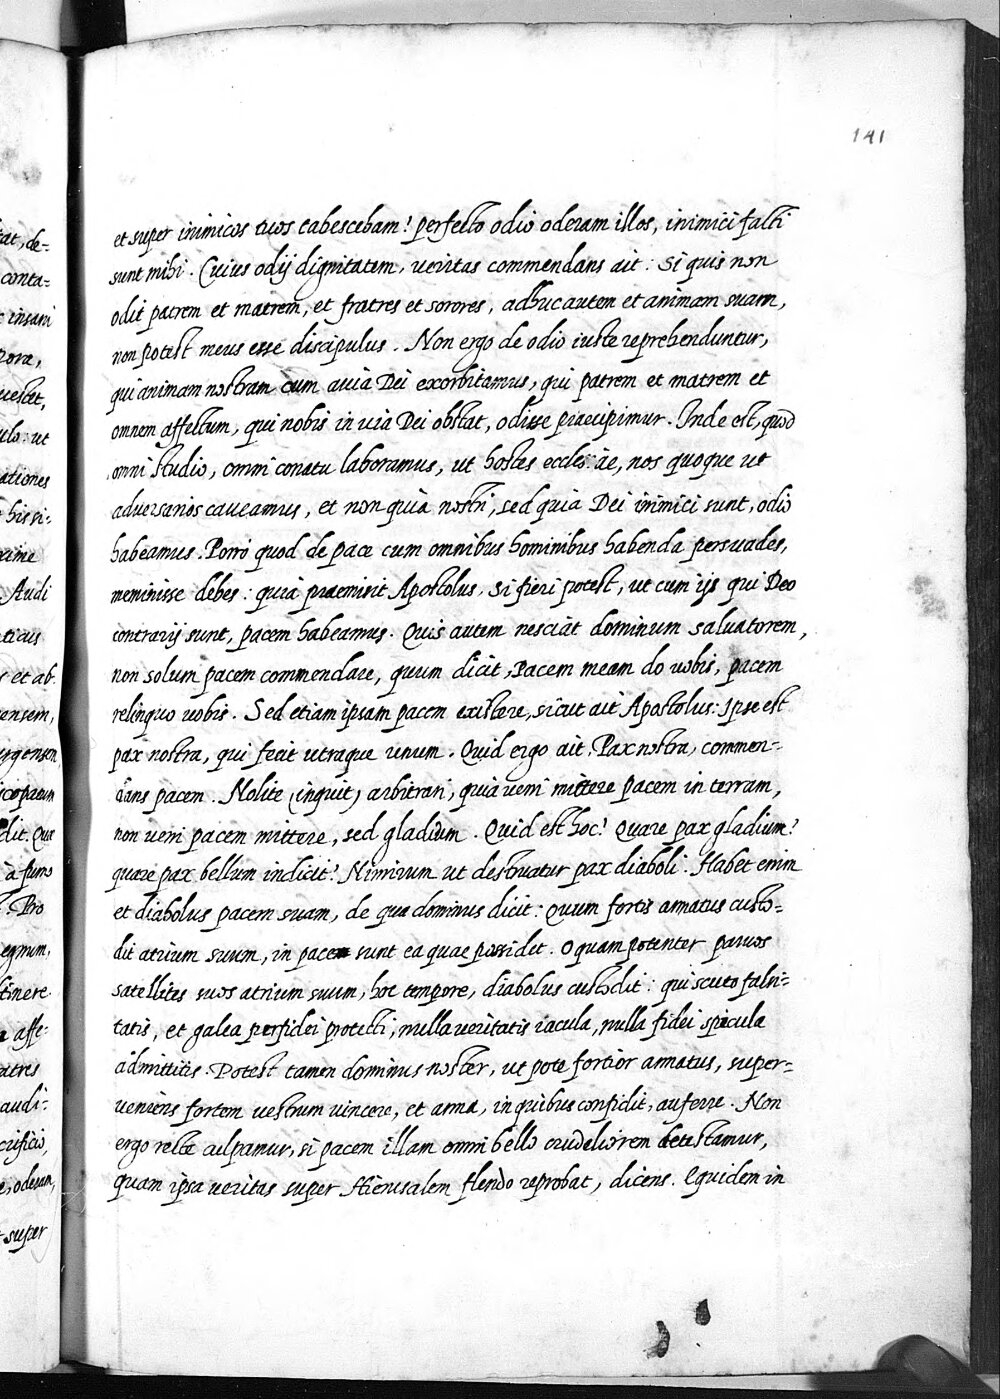 141
et super inimicos tuos tabescebam? perfecto odio oderam illos, inimici facti
sunt mihi. Cuius odij dignitatem, veritas commendans ait: Si quis non
odit patrem et matrem, et fratres et sorores, adhuc autem et animam suam,
non potest meus esse discipulus. Non ergo de odio iuste reprehenduntur,
qui animam nostram cum a via Dei exorbitamus, qui patrem et matrem et
omnem affectum, qui nobis in via Dei obstat, odisse praecipimur. Inde est, quod
omni studio, omni conatu laboramus, ut hostes ecclesiae, nos quoque ut
adversarios caveamus, et non quia nostri, sed quia Dei inimici sunt, odio
habeamus. Porro quod de pace cum omnibus hominibus habenda persuades,
meminisse debes: quia praemisit Apostolus, Si fieri potest, ut cum ijs qui Deo
contrarij sunt, pacem habeamus. Quis autem nesciat dominum salvatorem,
non solum pacem commendare, quum dicit, Pacem meam do vobis, pacem
relinquo vobis. Sed etiam ipsam pacem existere, sicut ait Apostolus: Ipse est
pax nostra, qui fecit utraque unum. Quid ergo ait, Pax nostra, commen-
dans pacem. Nolite (inquit) arbitrari, quia veni mittere pacem in terram,
non veni pacem mittere, sed gladium. Quid est hoc? Quare pax gladium?
quare pax bellum indicit? Nimirum ut destruatur pax diaboli. Habet enim
et diabolus pacem suam, de qua dominus dicit: Quum fortis armatus custo=
dit atrium suum, in pace sunt ea quae possidet. O quam potenter parvos
satellites suos atrium suum, hoc tempore, diabolus custodit: qui scuto falsi=
tatis, et galea perfidei protecti, nulla veritatis iacula, nulla fidei spicula
admittitis. Potest tamen dominus noster, ut pote fortior armatus, super=
veniens fortem vestrum vincere, et arma, in quibus confidit, auferre. Non
ergo recte culpamur, si pacem illam omni bello crudeliorem detestamur,
quam ipsa veritas super Hierusalem flendo reprobat, dicens. Equidem in